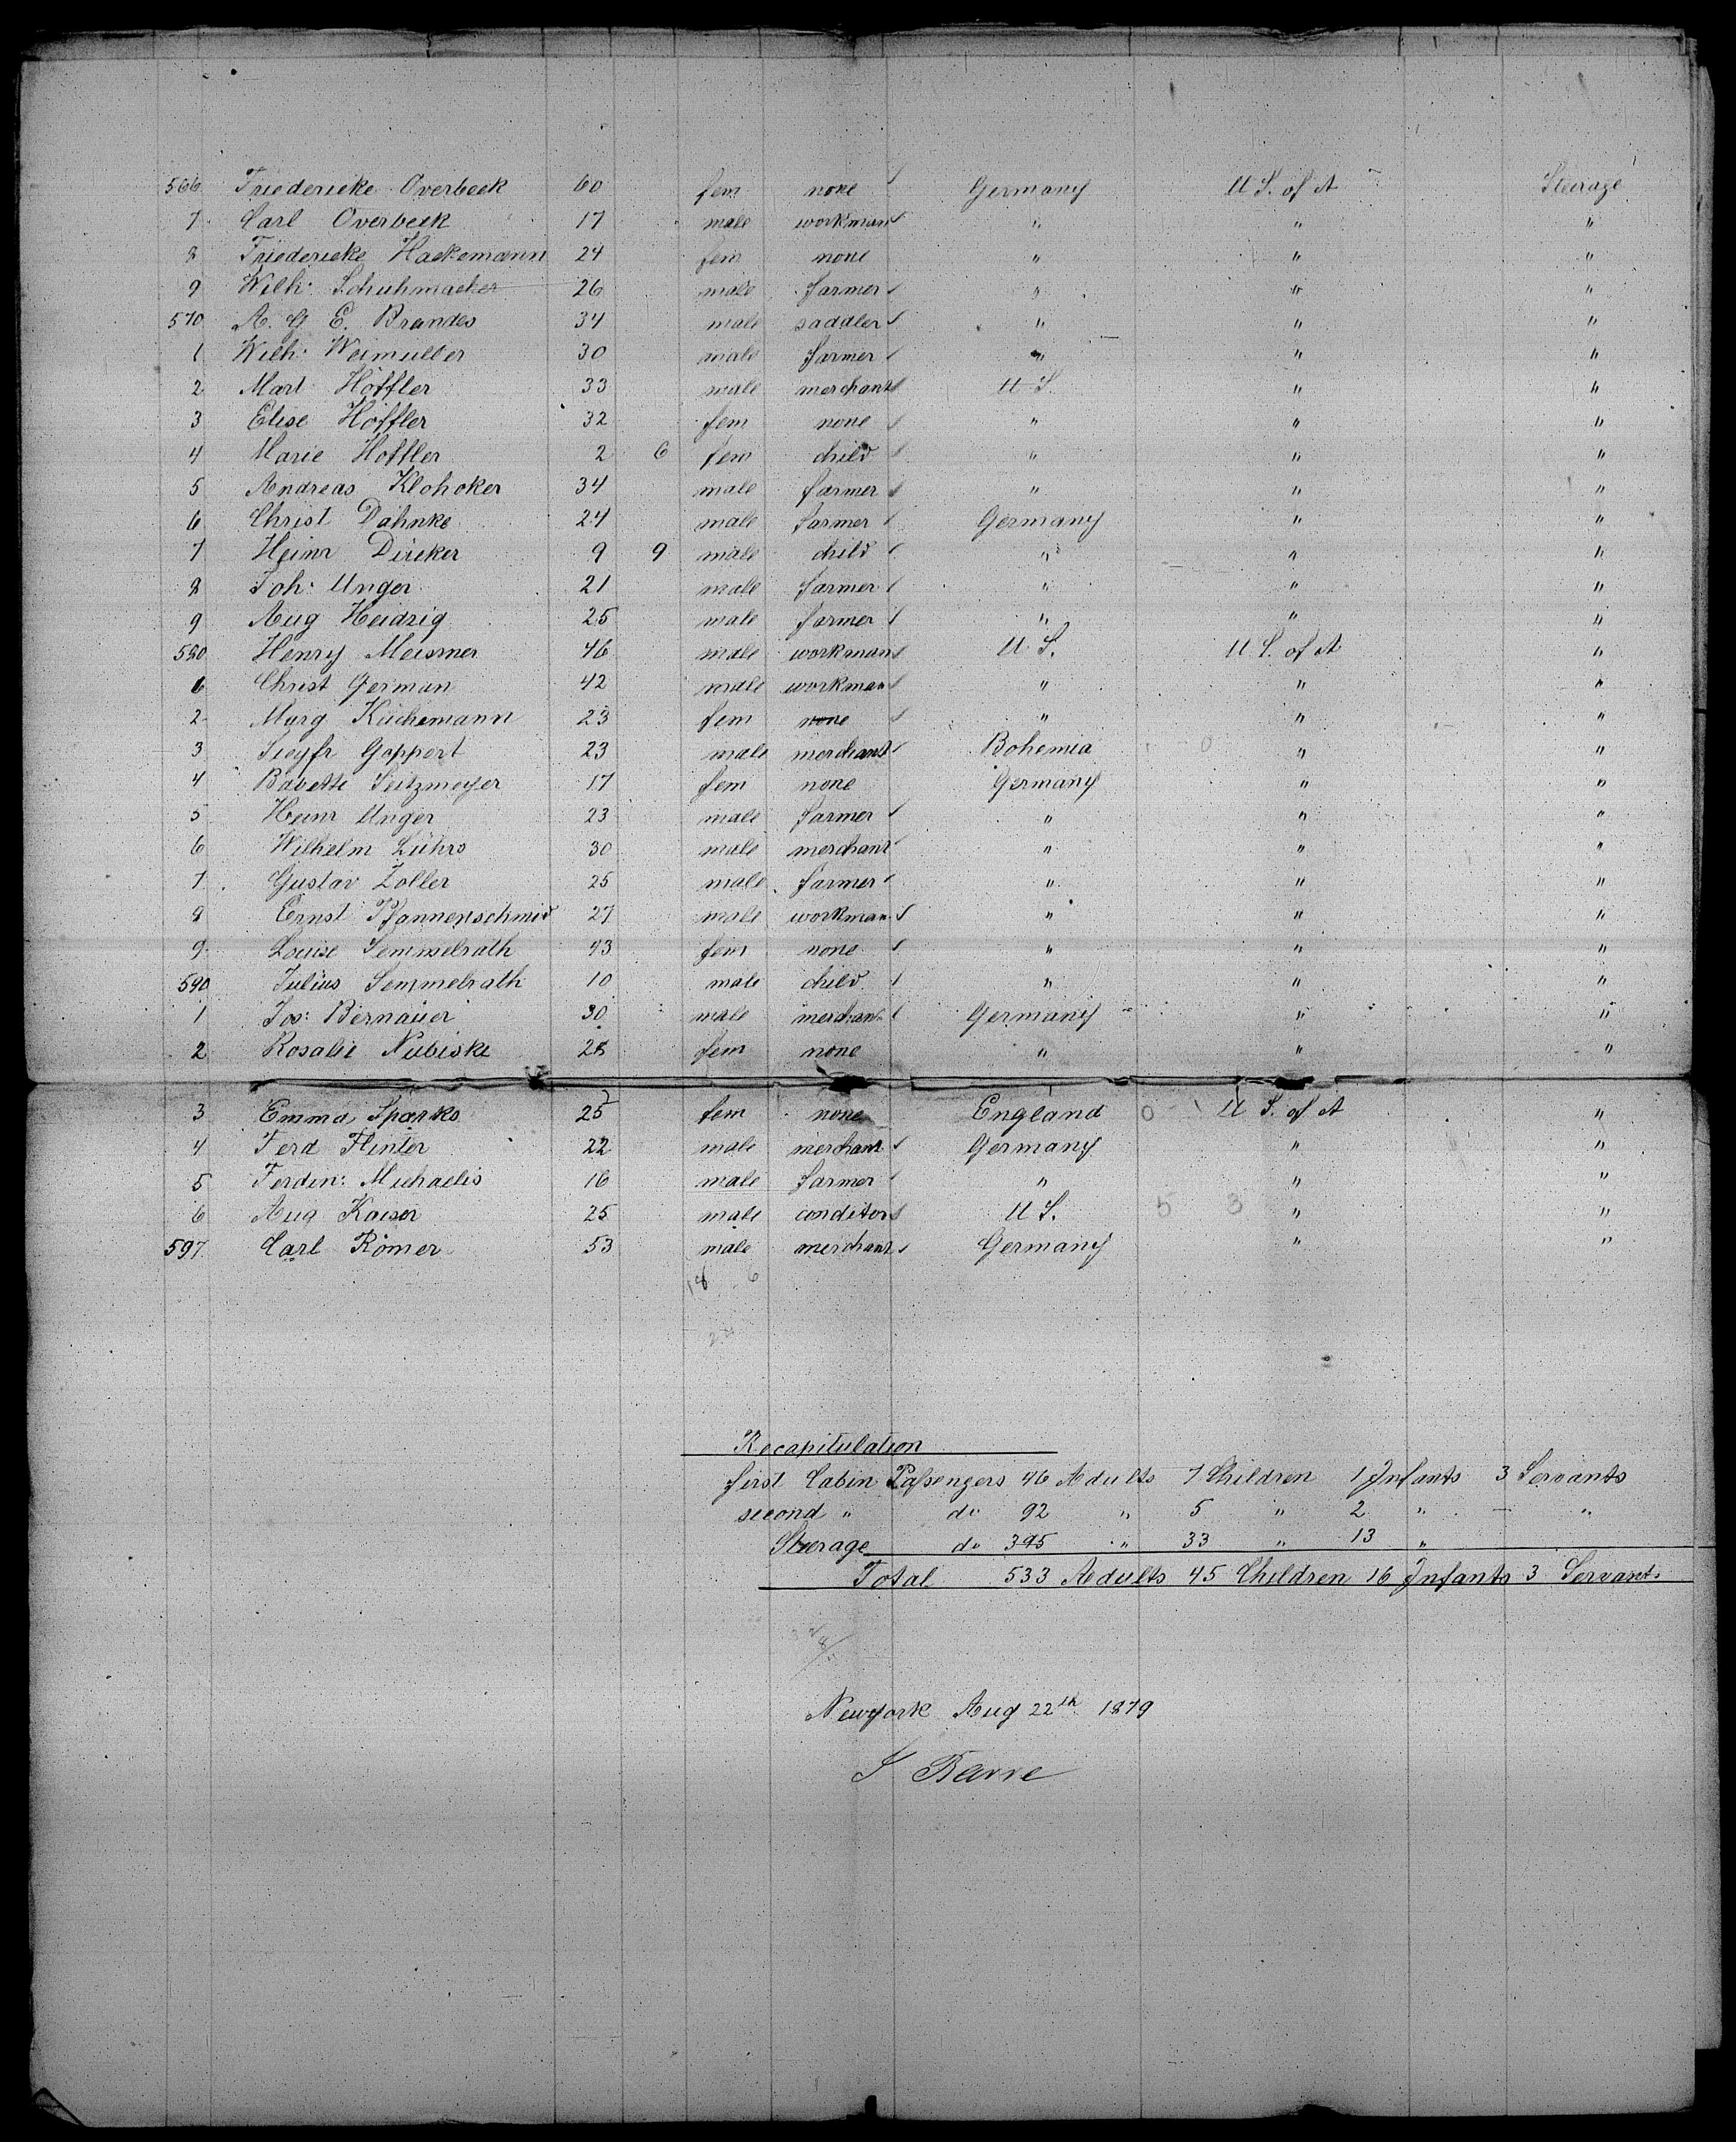 566 Friedericke Overbeck 60 fem none Germany U S. of A Steerage
7 Carl Overbeck 17 male workman " " "
8 Friedericke Hackemann 24 fem none " " "
9 Wilh: Schuhmacher 26 male farmer " " "
570 A. G E. Brandes 34 male saddler " " "
1 Wilh: Weimuller 30 male farmer " " "
2 Mart Höffler 33 male merchant U S. " "
3 Elise Höffler 32 fem none " " "
4 Marie Höffler 2 6 fem child " " "
5 Andreas Klohoker 34 male farmer " " "
6 Christ Dähnke 24 male farmer Germany " "
7 Heinr Dücker 9 9 male child " " "
8 Joh: Unger 21 male farmer " " "
9 Aug Heidrig 25 male farmer " " "
580 Henry Meisner 46 male workman U S. U S. of A "
1 Christ German 42 male workman " " "
2 Marg Kuchemann 23 fem none " " "
3 Siegfr Goppert 23 male merchant Bohemia 0 " "
4 Babette Seitzmeyer 17 fem none Germany " "
5 Heinr Unger 23 male farmer " " "
6 Wilhelm Lührs 30 male merchant " " "
7 Gustav Zoller 25 male farmer " " "
8 Ernst Pfannenschmid 27 male workman " " "
9 Louise Semmelrath 43 fem none " " "
590 Julius Semmelrath 10 male child " " "
1 Jos: Bernauer 30 male merchant Germany " "
2 Rosalie Nubiske 25 fem none " " "
3 Emma Sparks 25 fem none England 0 U S. of A "
4 Ferd Flinter 22 male merchant Germany " "
5 Ferdin: Michaelis 16 male farmer " " "
6 Aug Kaiser 25 male conditor U S. 5 3 " "
597 Carl Römer 53 male merchant Germany " "
18 6
Recapitulation
first Cabin Passengers 46 Adults 7 Children 1 Infants 3 Servants
second " do 92 " 5 " 2 " — "
Steerage do 395 " 33 " 13 "
Total 533 Adults 45 Children 16 Infants 3 Servants
Newyork Aug 22th 1879
S Barre